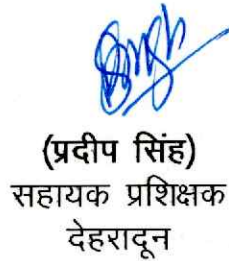 (प्रदीप सिंह)
सहायक प्रशिक्षक
देहरादून